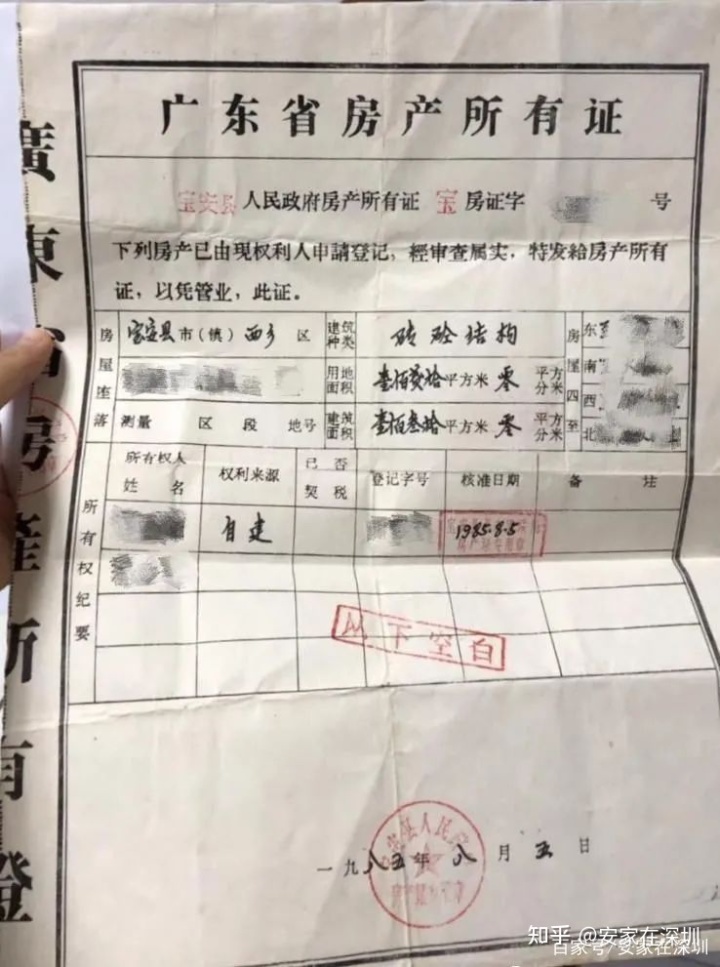 广东省房产所有证
宝安县人民政府房产所有证 宝 房证字 号
下列房产已由现权利人申請登记,經审查属实,特发給房产所有
证,以凭管业,此证。
房屋座落 宝安县市(镇)西乡 区 建筑种类 砖砼结构 房屋四至 东
用地面积 平方米 零 平方分米 南
西
测量 区 段 地号 建筑面积 壹佰叁拾平方米 零 平方分米 北
所有权纪要 所有权人姓名 权利来源 已否契税 登记字号 核准日期 备 注
自建 1985.8.5
以下空白
一九八五年 八 月 五 日
廣東省房產所有證
知乎 @安家在深圳
百家号/安家在深圳